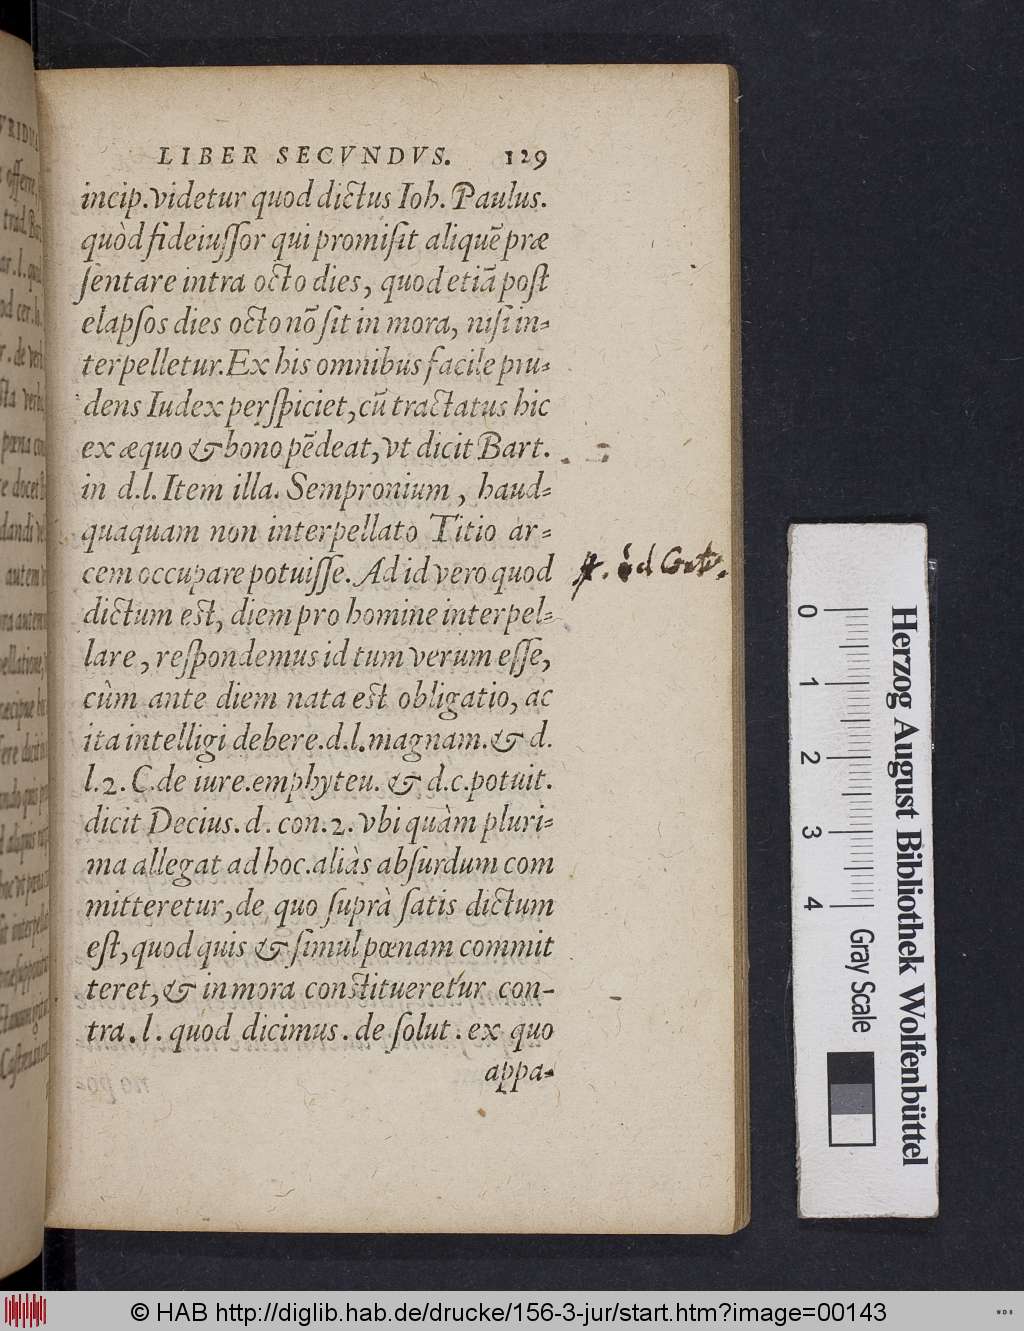 LIBER SECVNDVS. 129
incip. videtur quod dictus Ioh. Paulus.
quòd fideiuſſor qui promiſit aliquē præ
ſentare intra octo dies, quod etiā poſt
elapſos dies octo nō ſit in mora, niſi in-
terpelletur. Ex his omnibus facile pru-
dens Iudex perſpiciet, cū tractatus hic
ex æquo & bono pēdeat, vt dicit Bart.
in d.l. Item illa. Sempronium, haud-
quaquam non interpellato Titio ar-
cem occupare potuiſſe. Ad id vero quod
dictum eſt, diem pro homine interpel-
lare, reſpondemus id tum verum eſſe,
cùm ante diem nata eſt obligatio, ac
ita intelligi debere.d.l.magnam.& d.
l.2. C.de iure.emphyteu. & d.c.potuit.
dicit Decius. d. con.2. vbi quàm pluri-
ma allegat ad hoc.aliàs abſurdum com
mitteretur, de quo ſuprà ſatis dictum
eſt, quod quis & ſimul pœnam commit
teret, & in mora conſtitueretur con-
tra. l. quod dicimus. de ſolut. ex quo
appa-
Herzog August Bibliothek Wolfenbüttel
0 1 2 3 4 Gray Scale
© HAB http://diglib.hab.de/drucke/156-3-jur/start.htm?image=00143